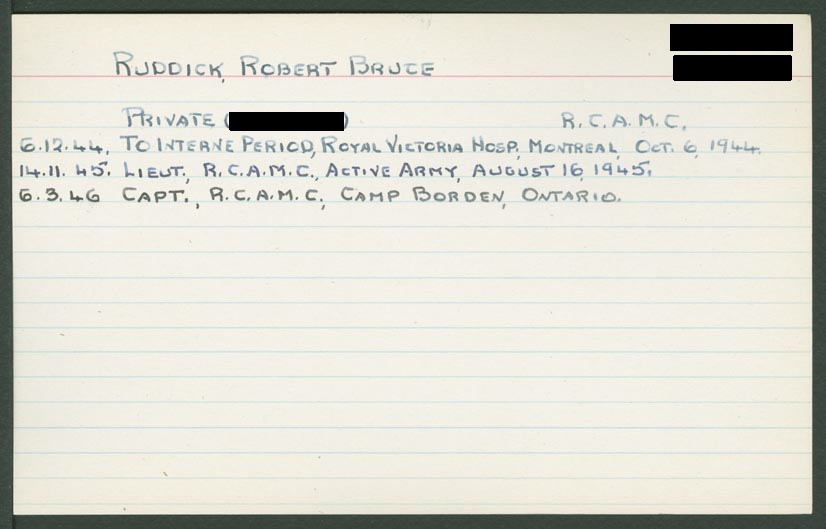 RUDDICK, ROBERT BRUCE
PRIVATE ( ) R.C.A.M.C.
6.12.44. TO INTERNE PERIOD, ROYAL VICTORIA HOSP, MONTREAL, OCT. 6, 1944.
14.11.45. LIEUT., R.C.A.M.C., ACTIVE ARMY, AUGUST 16, 1945.
6.3.46 CAPT., R.C.A.M.C., CAMP BORDEN, ONTARIO.